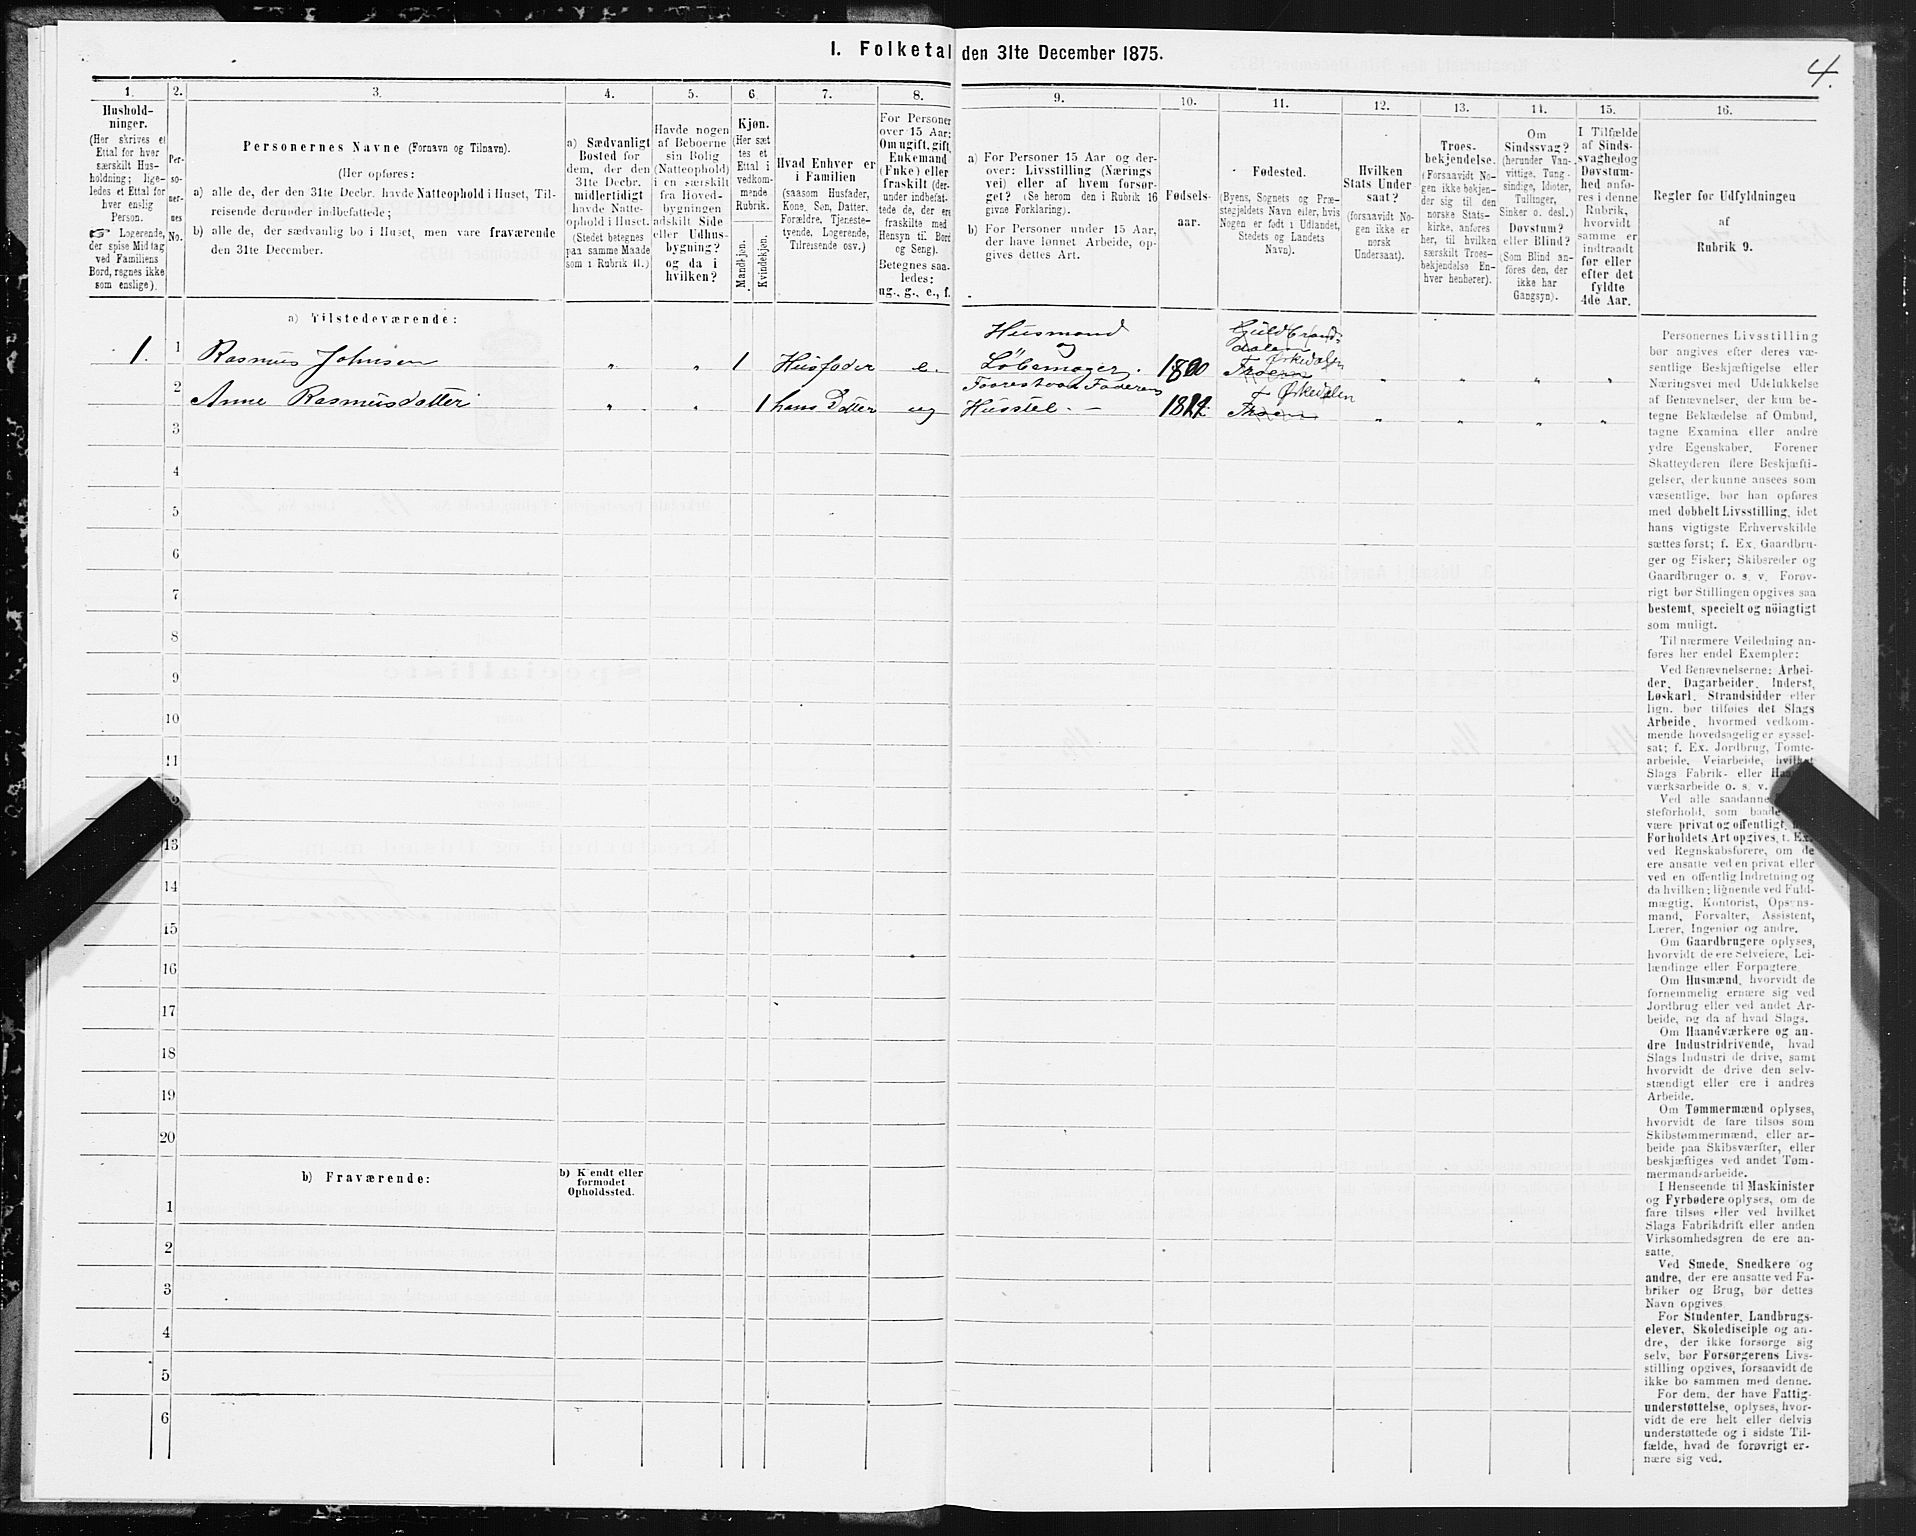 I. Folketal den 31te December 1875.
4.
1.
2.
3.
4.
5.
6.
7.
8.
9.
10.
11.
12.
13.
14.
15.
16.
Hushold-
ninger.
(Her skrives et
Ettal for hver
særskilt Hus-
holdning; lige-
ledes et Ettal for
hver enslig
Person.
☞ Logerende,
der spise Middag
ved Familiens
Bord, regnes ikke
som enslige).
Per-
so-
ner-
nes
No.
Personernes Navne (Fornavn og Tilnavn).
(Her opføres:
a) alle de, der den 31te Decbr. havde Natteophold i Huset, Til-
reisende derunder indbefattede;
b) alle de, der sædvanlig bo i Huset, men vare fraværende
den 31te December.
a) Sædvanligt
Bosted for
dem, der den
31te Decbr.
midlertidigt
havde Natte-
ophold i Huset.
(Stedet betegnes
paa samme Maade
som i Rubrik 11.)
Havde nogen
af Beboerne
sin Bolig
(Natteophold)
i en særskilt
fra Hoved-
bygningen
adskilt Side
eller Udhus-
bygning?
og da i
hvilken?
Kjøn.
(Her sæt
tes et
Ettal i
vedkom-
mende
Rubrik.
Mandkjøn.
Kvindekjøn.
Hvad Enhver er
i Familien
(saasom Husfader,
Kone, Søn, Datter,
Forældre, Tjeneste-
tyende, Logerende,
Tilreisende osv.)
For Personer
over 15 Aar:
Om ugift, gift,
Enkemand
(Enke) eller
fraskilt (der-
under indbefat-
tede de, der ere
fraskilte med
Hensyn til Bord
og Seng).
Betegnes saa-
ledes:
ug., g., e., f.
a) For Personer 15 Aar og der-
over: Livsstilling (Nærings
vei) eller af hvem forsør-
get? (Se herom den i Rubrik 16
givne Forklaring).
b) For Personer under 15 Aar,
der have lønnet Arbeide, op-
gives dettes Art.
Fødsels-
aar.
Fødested.
(Byens, Sognets og Præ-
stegjeldets Navn eller, hvis
Nogen er født i Udlandet,
Stedets og Landets
Navn).
Hvilken
Stats Under
saat?
(forsaavidt No-
gen ikke er
norsk
Undersaat).
Troes-
bekjendelse.
(Forsaavidt No-
gen ikke bekjen-
der sig til den
norske Stats-
kirke, anføres
her, til hvilken
særskilt Troes-
bekjendelse En-
hver henhører).
Om
Sindssvag?
(herunder Van-
vittige, Tung-
sindige, Idioter,
Tullinger,
Sinker o. desl.)
Døvstum?
eller Blind?
(Som Blind an-
føres den, der
ikke har
Gangsyn).
I Tilfælde
af Sinds-
svaghed og
Døvstum-
hed anfø-
res i denne
Rubrik,
hvorvidt
samme er
indtraadt
før eller
efter det
fyldte
4de Aar.
Regler for Udfyldningen
af
Rubrik 9.
a) Tilstedeværende:
1. 1 Rasmus Johnsen „ „ 1 Husfader e. Husmand og Løbemager. 1800 Guldbrands-dalen T Ørkedalen „ „ „ „
2 Anne Rasmusdatter „ „ 1 hans Datter ug Faarestaar Faderens Husstel. – T Ørkedalen „ „ „ „
3
4
5
6
7
8
9
10
11
13
14
15
16
17
18
19
20
b) Fraværende:
b) Kjendt eller
formodet
Opholdssted.
1
2
3
4
5
6
Personernes Livsstilling
bør angives efter deres væ-
sentlige Beskjæftigelse eller
Næringsvei med Udelukkelse
af Benævnelser, der kun be-
tegne Beklædelse af Ombud,
tagne Examina eller andre
ydre Egenskaber. Forener
Skatteyderen flere Beskjæfti-
gelser, der kunne ansees som
væsentlige, bør han opføres
med dobbelt Livsstilling, idet
hans vigtigste Erhvervskilde
sættes først; f. Ex. Gaardbru-
ger og Fisker; Skibsreder og
Gaardbruger o. s. v. Forøv-
rigt bør Stillingen opgives saa
bestemt, specielt og nöiagtigt
som muligt.
Til nærmere Veiledning an-
føres her endel Exempler:
Ved Benævnelserne: Arbei-
der, Dagarbeider, Inderst,
Løskarl, Strandsidder eller
lign. bør tilføies det Slags
Arbeide, hvormed vedkom-
mende hovedsagelig er syssel-
sat; f. Ex. Jordbrug, Tomte-
arbeide, Veiarbeide, hvilket
Slags Fabrik- eller
værksarbeide o. s. v.
Ved alle saadanne
steforhold, som baade
være privat og offentligt,
Forholdets Art opgives, f. Ex.
ved Regnskabsførere, om de
ere ansatte ved en privat eller
ved en offentlig Indretning og
da hvilken; lignende ved Fuld-
mægtig, Kontorist, Opsyns-
mand, Forvalter, Assistent,
Lærer, Ingeniør og andre.
Om Gaardbrugere oplyses,
hvorvidt de ere Selveiere, Lei-
lændinge eller Forpagtere.
Om Husmænd, hvorvidt de
fornemmelig ernære sig ved
Jordbrug eller ved andet Ar-
beide, og da af hvad Slags.
Om Haandværkere og an-
dre Industridrivende, hvad
Slags Industri de drive, samt
hvorvidt de drive den selv-
stændigt eller ere i andres
Arbeide.
Om Tømmermænd oplyses,
hvorvidt de fare tilsøs som
Skibstømmermænd, eller ar-
beide paa Skibsværfter, eller
beskjæftiges ved andet Tøm-
mermandsarbeide.
I Henseende til Maskinister
og Fyrbødere oplyses, om de
fare tilsøs eller ved hvilket
Slags Fabrikdrift eller anden
Virksomhedsgren de ere an-
satte.
Ved Smede, Snedkere og
andre, der ere ansatte ved Fa-
briker og Brug, bør dettes
Navn opgives
For Studenter, Landbrugs-
elever, Skoledisciple og an-
dre, der ikke forsørge sig
selv, bør Forsørgerens Livs-
stilling opgives, forsaavidt de
ikke bo sammen med denne.
For dem, der have Fattig-
understøttelse, oplyses, hvor-
vidt de ere helt eller delvis
understøttede og i sidste Til-
fælde, hvad de forøvrigt er-
nære sig ved.